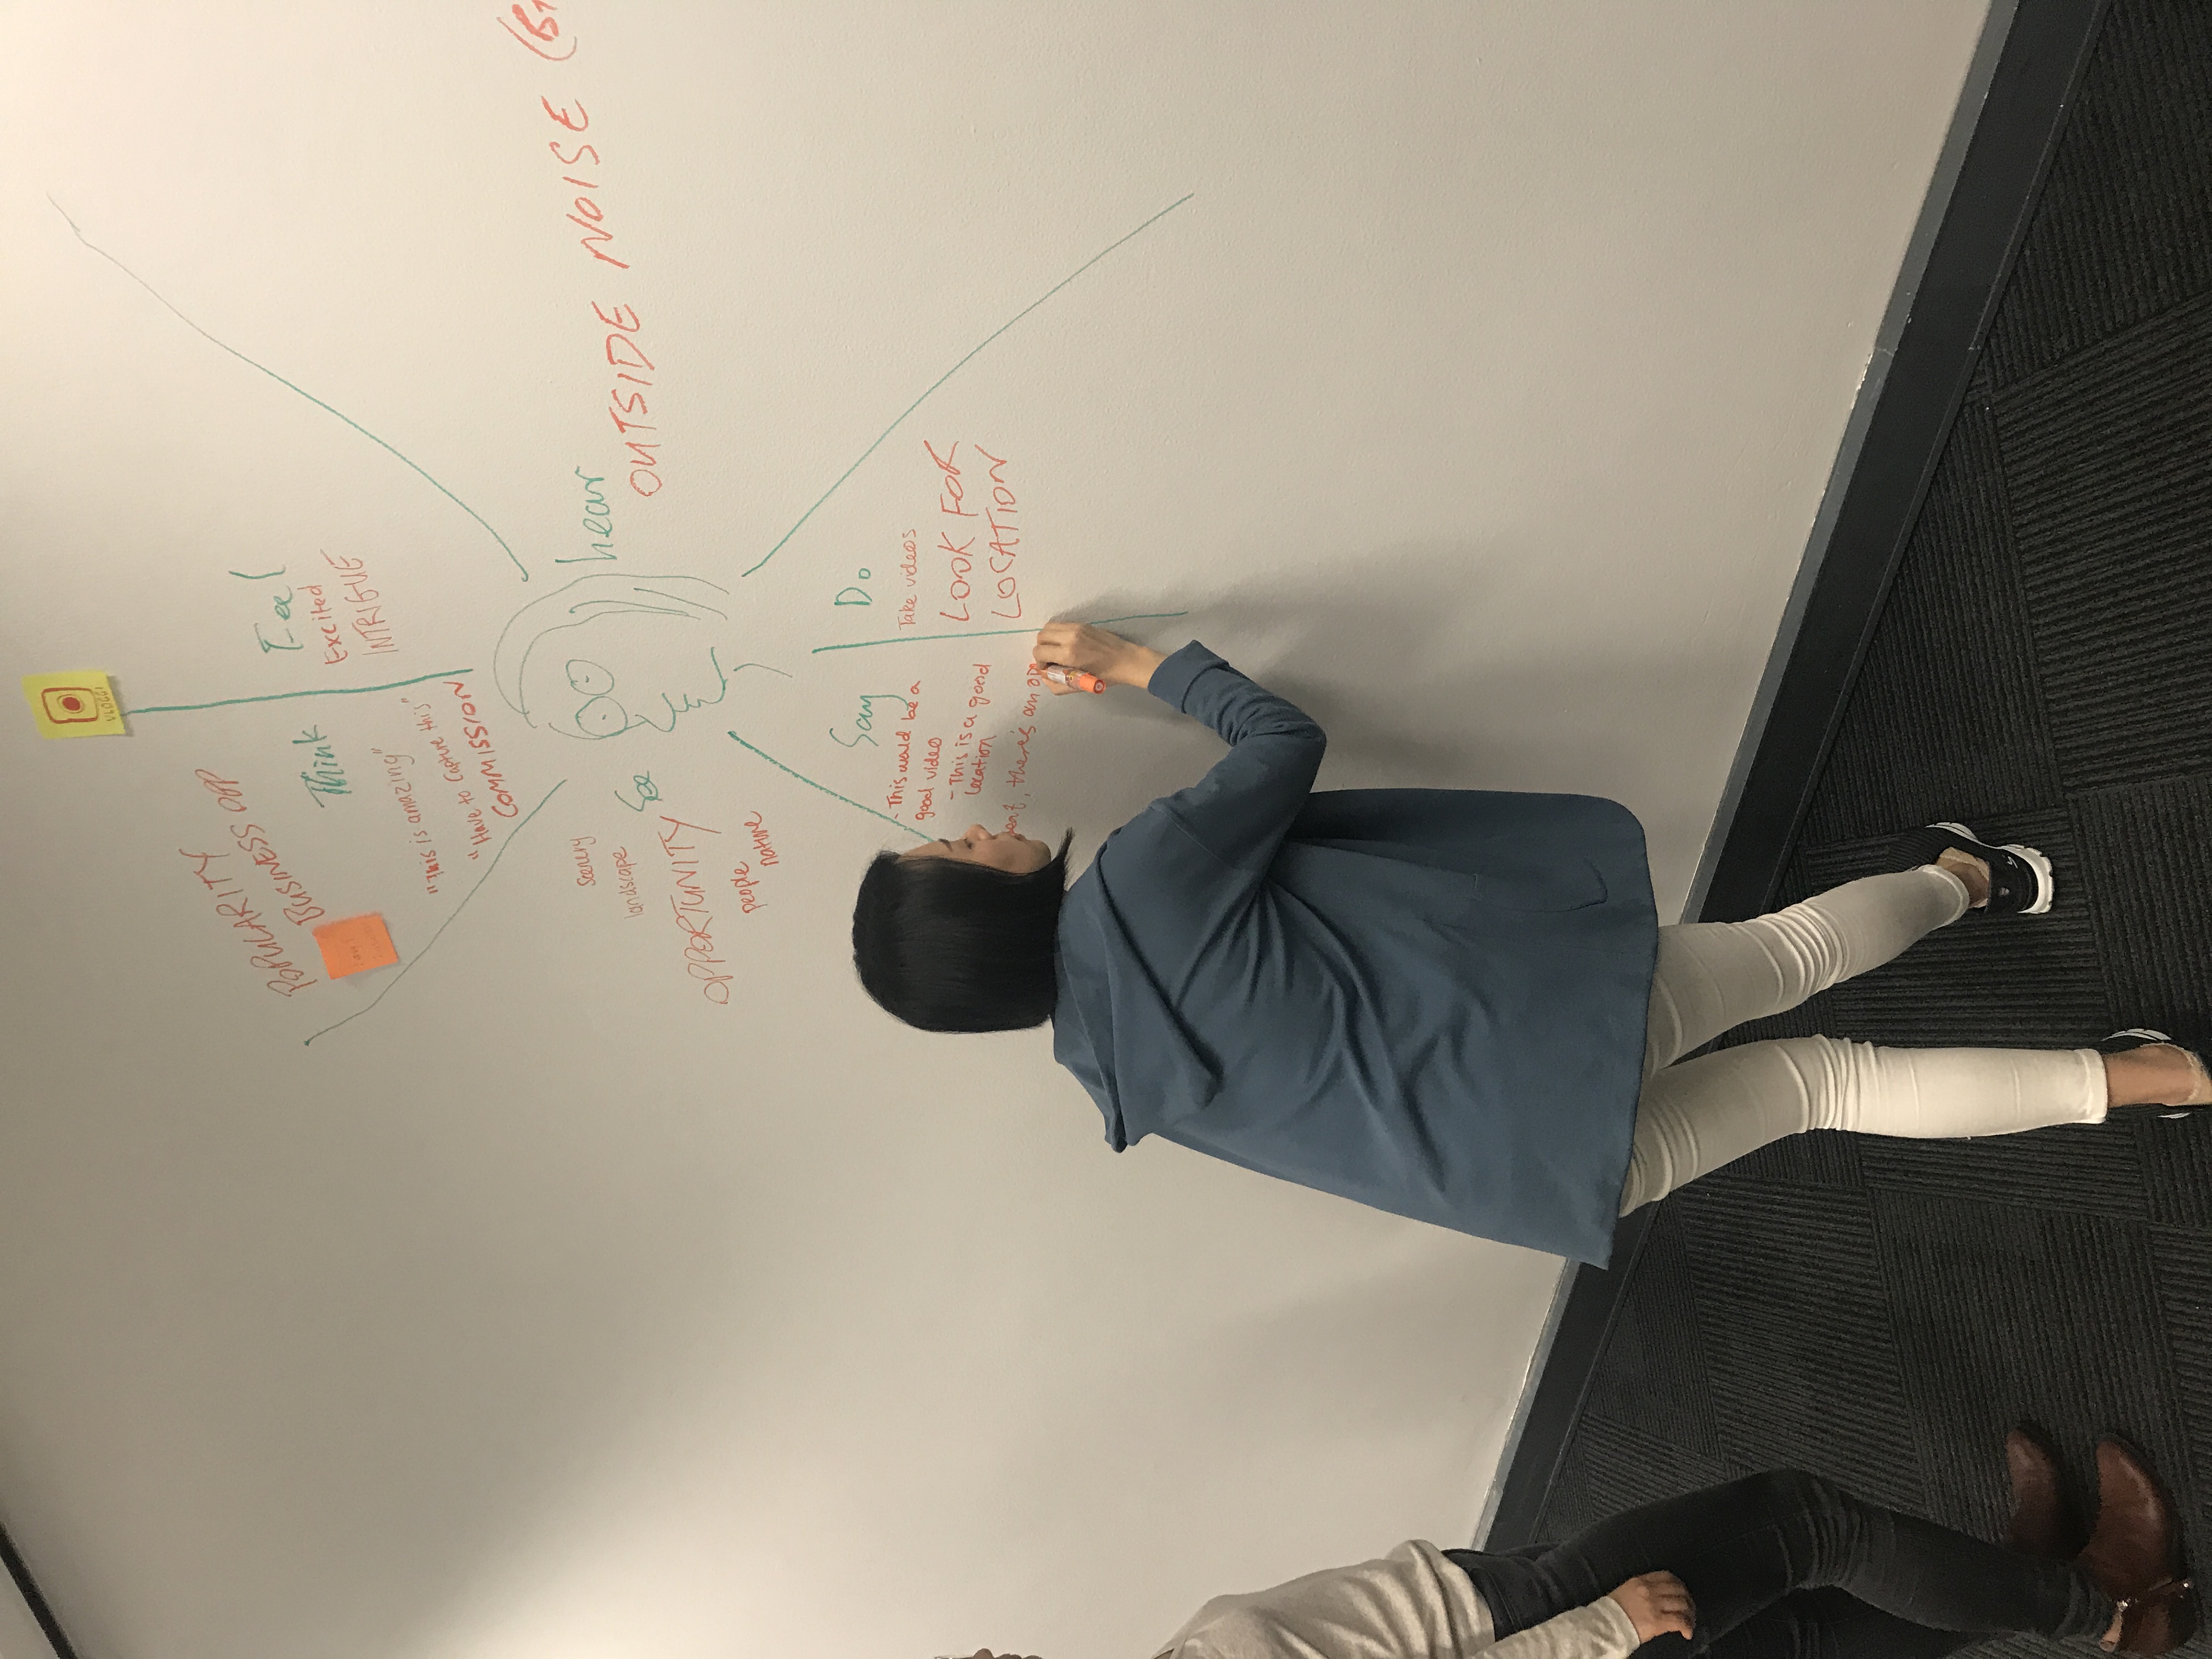 VLOGGI
POPULARITY
BUSINESS OPP
Think
"This is amazing"
"Have to Capture this"
COMMISSION
Feel
Excited
INTRIGUE
See
Scenery
landscape
OPPORTUNITY
people
nature
hear
OUTSIDE NOISE
Say
- This would be a
good video
- This is a good
location
there's an
Do
Take videos
LOOK FOR
LOCATION